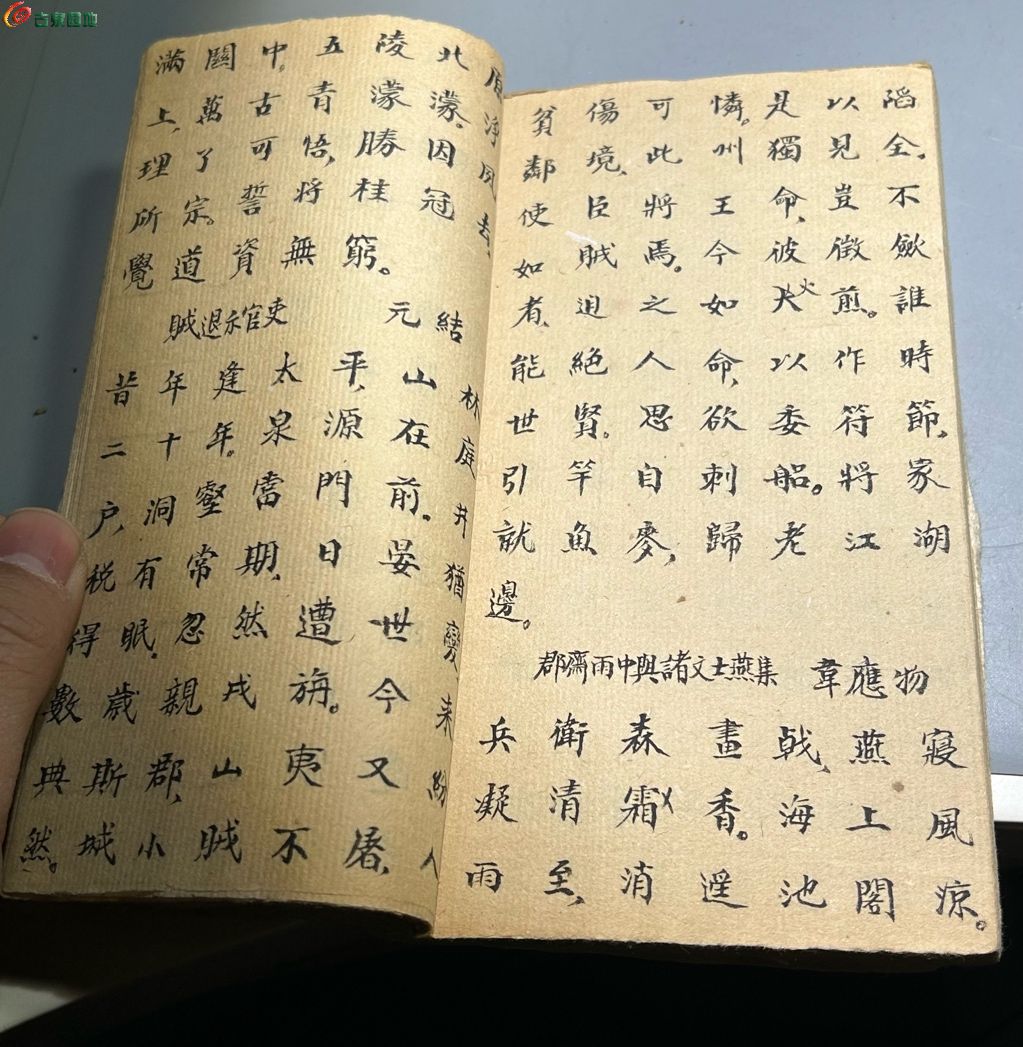 滿關中。五陵北原
上,萬古青濛濛。淨
理了可悟,勝因夙
所宗。誓將桂冠去,
覺道資無窮。
賊退示官吏 元結
昔年逢太平,山林
二十年。泉源在庭
户,洞壑當門前。井
税有常期,日晏猶
得眠。忽然遭世變
數歲親戎旃。今来
典斯郡,山夷又紛
然。城小賊不屠,人
貧傷可憐。是以陷
鄰境,此州獨見全。
使臣將王命,豈不
如賊焉。今彼徵斂
者,迫之如火煎。誰
能絕人命,以作時
世賢。思欲委符節,
引竿自刺船。將家
就魚麥,歸老江湖
邊。
郡齋雨中與諸文士燕集 韋應物
兵衛森畫戟,燕寢
凝清霜香。海上風
雨至,消遥池閣凉。
古泉園地